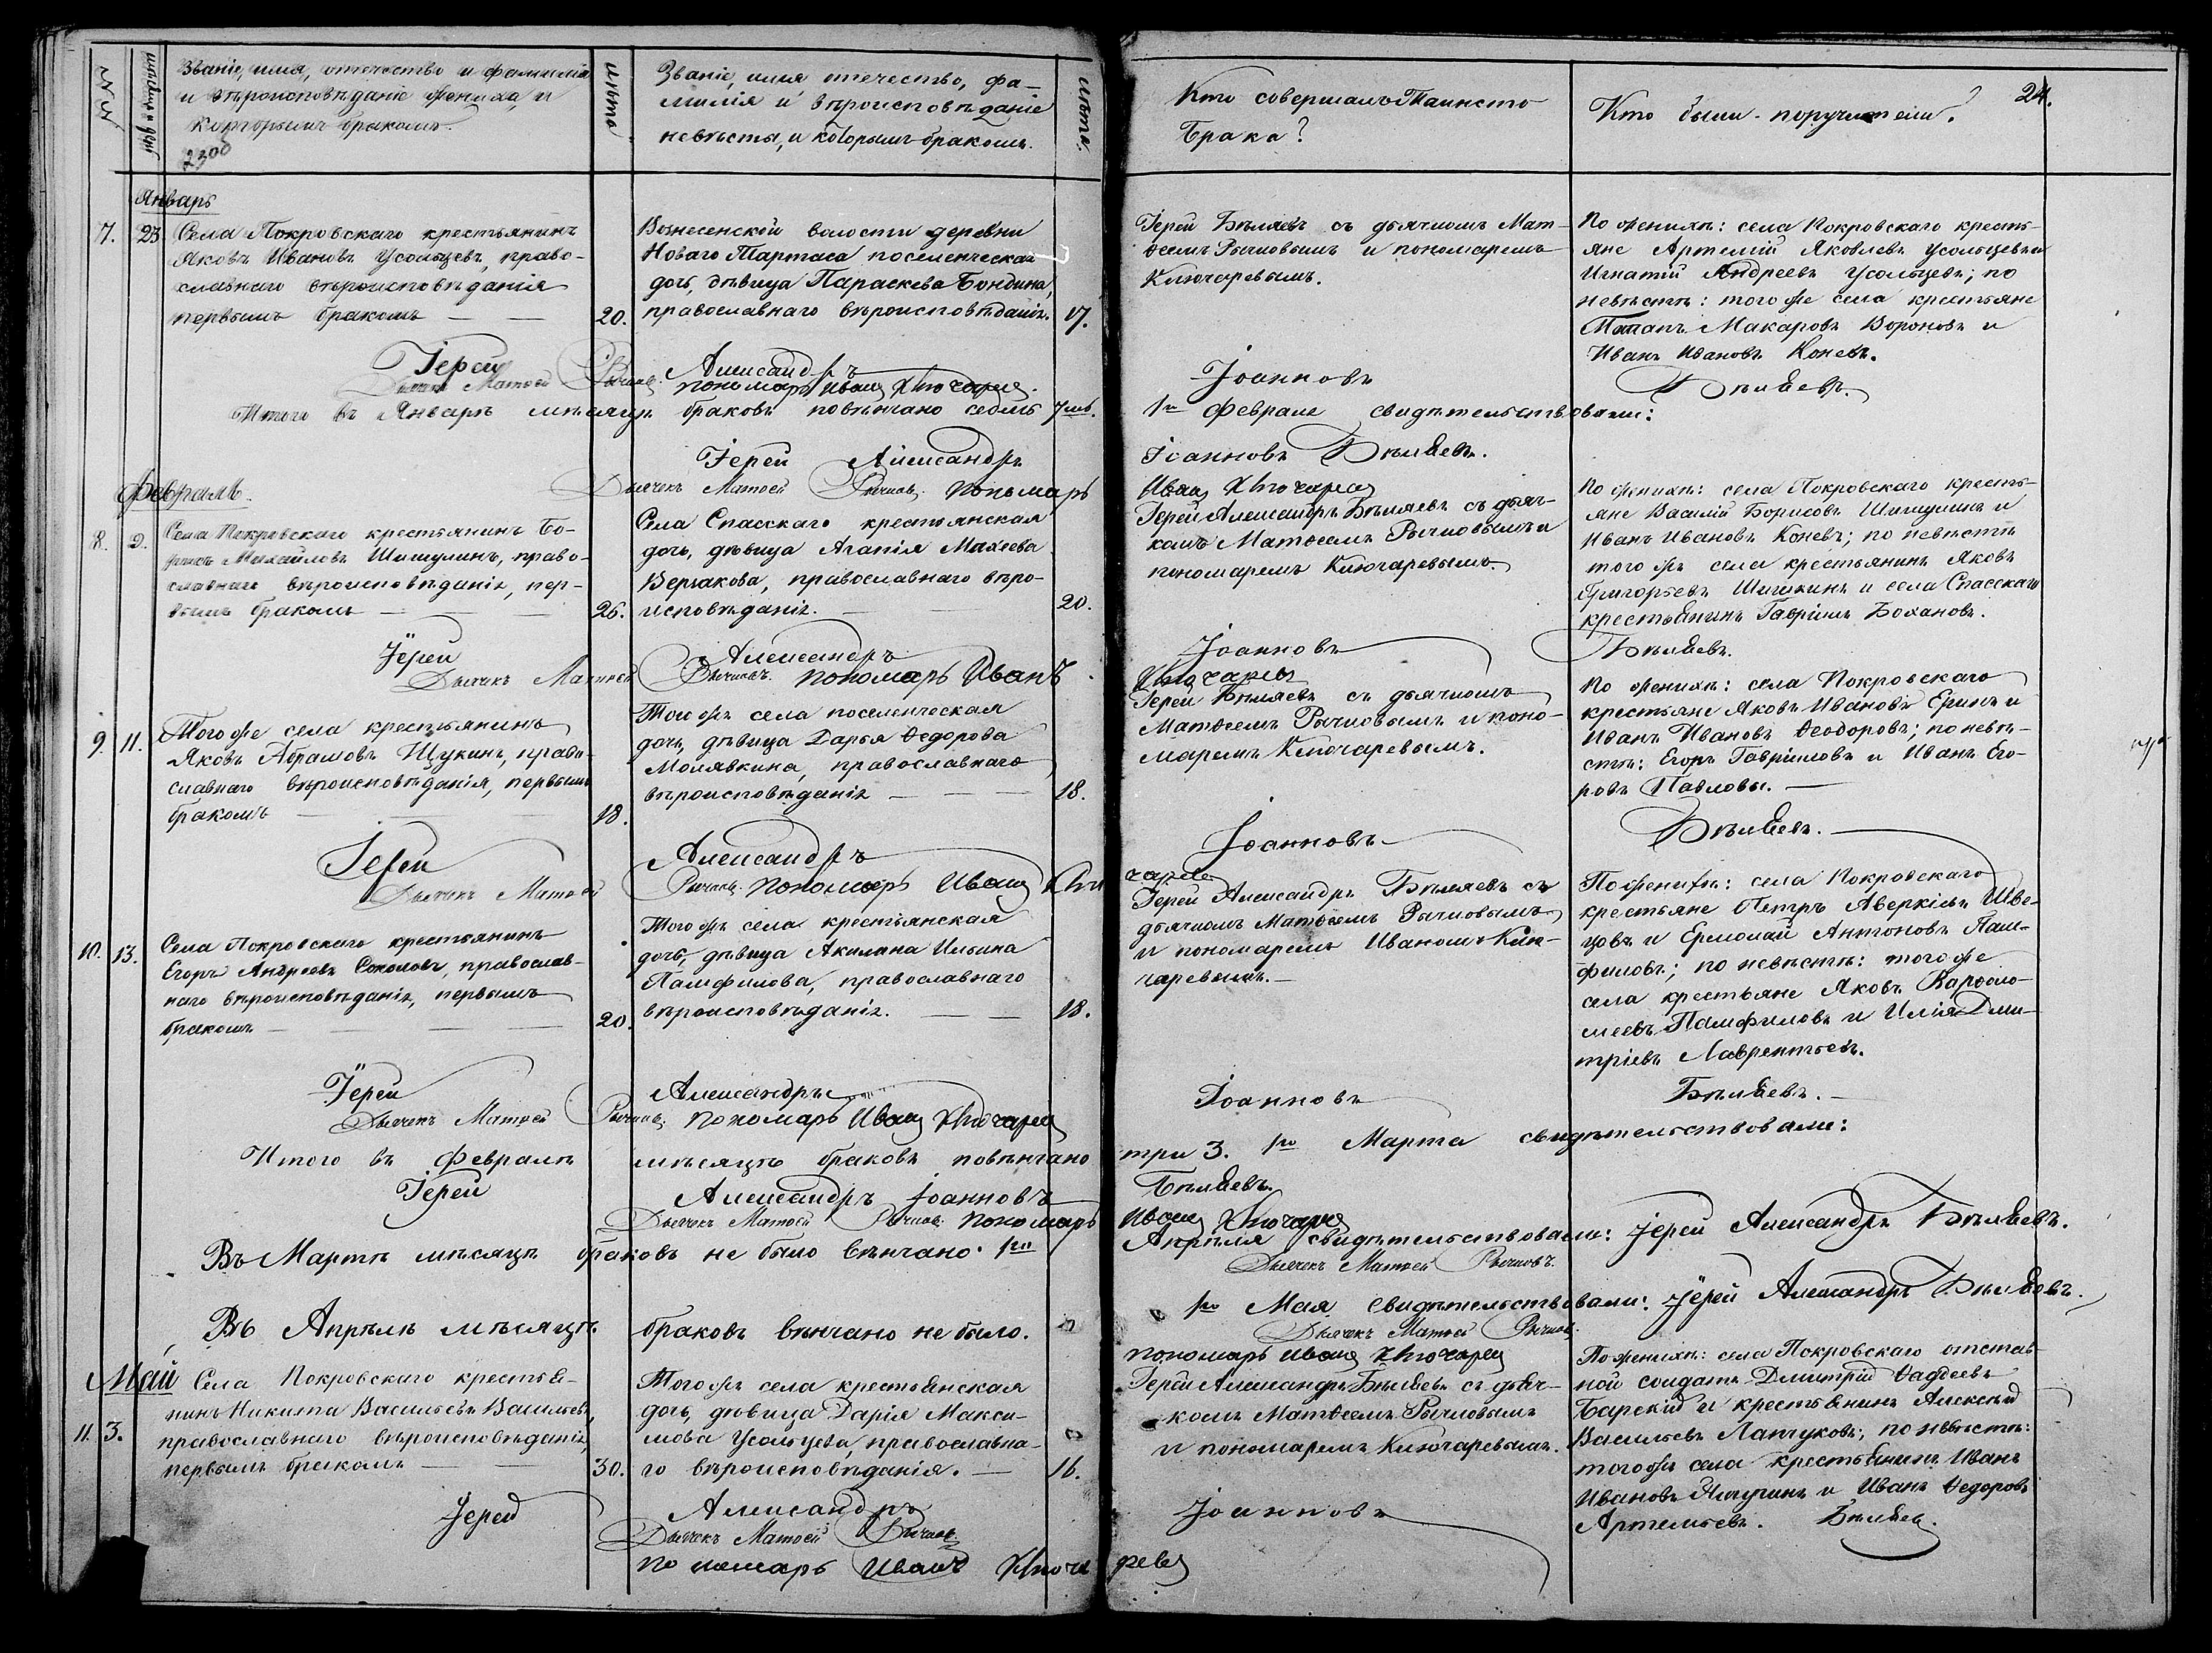 №№
Званіе, имя, отечество и фамилія
и вѣроисповѣданіе жениха, и
которымъ бракомъ.
лѣта
Званіе, имя отечество, фа-
милія и вѣроисповѣданіе
невѣсты, и которымъ бракомъ.
лѣта.
Кто совершалъ Таинство
Брака?
Кто были поручители?
24.
Январь
7. 23
Села Покровскаго крестьянинъ
Яковъ Ивановъ Усольцевъ, право-
славнаго вѣроисповѣданія
первымъ бракомъ
20.
Вознесенской волости деревни
Новаго Тартаса поселенческая
дочь, дѣвица Параскева Бондина,
православнаго вѣроисповѣданія.
17.
Іерей Бѣляевъ съ дьячкомъ Мат-
ѳеемъ Рычковымъ и пономаремъ
Ключаревымъ.
По женихѣ: села Покровскаго кресть-
яне Артемій Яковлевъ Усольцевъ и
Игнатій Андреевъ Усольцевъ; по
невѣстѣ: того же села крестьяне
Потапъ Макаровъ Вороновъ и
Иванъ Ивановъ Коневъ.
Іерей Александръ Іоанновъ Бѣляевъ.
Дьячекъ Матѳей Рычковъ. пономарь Иванъ Ключаревъ.
Итого въ Январѣ мѣсяцѣ браковъ повѣнчано семь 7мь. 1го Февраля свидѣтельствовали:
Іерей Александръ Іоанновъ Бѣляевъ.
Дьячекъ Матѳей Рычковъ. пономарь Иванъ Ключаревъ
Февраль.
8. 2.
Села Покровскаго крестьянинъ Бо-
рисъ Михайловъ Шишулинъ, право-
славнаго вѣроисповѣданія, пер-
вымъ бракомъ
26.
Села Спасскаго крестьянская
дочь, дѣвица Агапія Махеева
Вершакова, православнаго вѣро-
исповѣданія.
20.
Іерей Александръ Бѣляевъ съ дьяч-
комъ Матѳеемъ Рычковымъ и
пономаремъ Ключаревымъ.
По женихѣ: села Покровскаго кресть-
яне Василій Борисовъ Шишулинъ и
Иванъ Ивановъ Коневъ; по невѣстѣ
того же села крестьянинъ Яковъ
Григорьевъ Шишкинъ и села Спасскаго
крестьянинъ Гавріилъ Бохановъ.
Іерей Александръ Іоанновъ Бѣляевъ.
Дьячекъ Матѳей Рычковъ. пономарь Иванъ Ключаревъ
9. 11.
Того же села крестьянинъ
Яковъ Абрамовъ Щукинъ, право-
славнаго вѣроисповѣданія, первымъ
бракомъ
18.
Того же села поселенческая
дочь, дѣвица Дарья Ѳедорова
Молявкина, православнаго
вѣроисповѣданія
18.
Іерей Бѣляевъ съ дьячкомъ
Матѳеемъ Рычковымъ и поно-
маремъ Ключаревымъ.
По женихѣ: села Покровскаго
крестьяне Яковъ Ивановъ Еринъ и
Иванъ Ивановъ Ѳеодоровъ; по невѣ-
стѣ: Егоръ Гавриловъ и Иванъ Его-
ровъ Павловы.
Іерей Александръ Іоанновъ Бѣляевъ.
Дьячекъ Матѳей Рычковъ. пономарь Иванъ Ключаревъ
10. 13.
Села Покровскаго крестьянинъ
Егоръ Андреевъ Соколовъ, православ-
наго вѣроисповѣданія, первымъ
бракомъ
20.
Того же села крестьянская
дочь, дѣвица Акилина Ильина
Памфилова, православнаго
вѣроисповѣданія.
18.
Іерей Александръ Бѣляевъ съ
дьячкомъ Матѳеемъ Рычковымъ
и пономаремъ Иваномъ Клю-
чаревымъ.
По женихѣ: села Покровскаго
крестьяне Петръ Аверкіевъ Шве-
цовъ и Ермолай Антоновъ Пам-
филовъ; по невѣстѣ: того же
села крестьяне Яковъ Варѳоло-
меевъ Памфиловъ и Илія Дми-
тріевъ Лаврентьевъ.
Іерей Александръ Іоанновъ Бѣляевъ.
Дьячекъ Матѳей Рычковъ. пономарь Иванъ Ключаревъ
Итого въ Февралѣ мѣсяцѣ браковъ повѣнчано три 3. 1го Марта свидѣтельствовали:
Іерей Александръ Іоанновъ Бѣляевъ.
Дьячекъ Матѳей Рычковъ. пономарь Иванъ Ключаревъ
Въ Мартѣ мѣсяцѣ браковъ не было вѣнчано. 1го Апрѣля свидѣтельствовали: Іерей Александръ Бѣляевъ.
Дьячекъ Матѳей Рычковъ.
Въ Апрѣлѣ мѣсяцѣ браковъ вѣнчано не было. 1го Мая свидѣтельствовали: Іерей Александръ Бѣляевъ.
Дьячекъ Матѳей Рычковъ.
пономарь Иванъ Ключаревъ
Май
11. 3.
Села Покровскаго крестья-
нинъ Никита Васильевъ Васильевъ,
православнаго вѣроисповѣданія,
первымъ бракомъ
30.
Того же села крестьянская
дочь, дѣвица Дарія Макси-
мова Усольцева, православна-
го вѣроисповѣданія.
16.
Іерей Александръ Бѣляевъ съ дьяч-
комъ Матѳеемъ Рычковымъ
и пономаремъ Ключаревымъ.
По женихѣ: села Покровскаго отстав-
ной солдатъ Димитрій Ѳаддеевъ
Барскій и крестьянинъ Алексѣй
Васильевъ Лапчуковъ; по невѣстѣ:
того же села крестьянинъ Иванъ
Ивановъ Яичугинъ и Иванъ Ѳедоровъ
Артемьевъ. Бѣляевъ.
Іерей Александръ Іоанновъ
Дьячекъ Матѳей Рычковъ.
пономарь Иванъ Ключаревъ